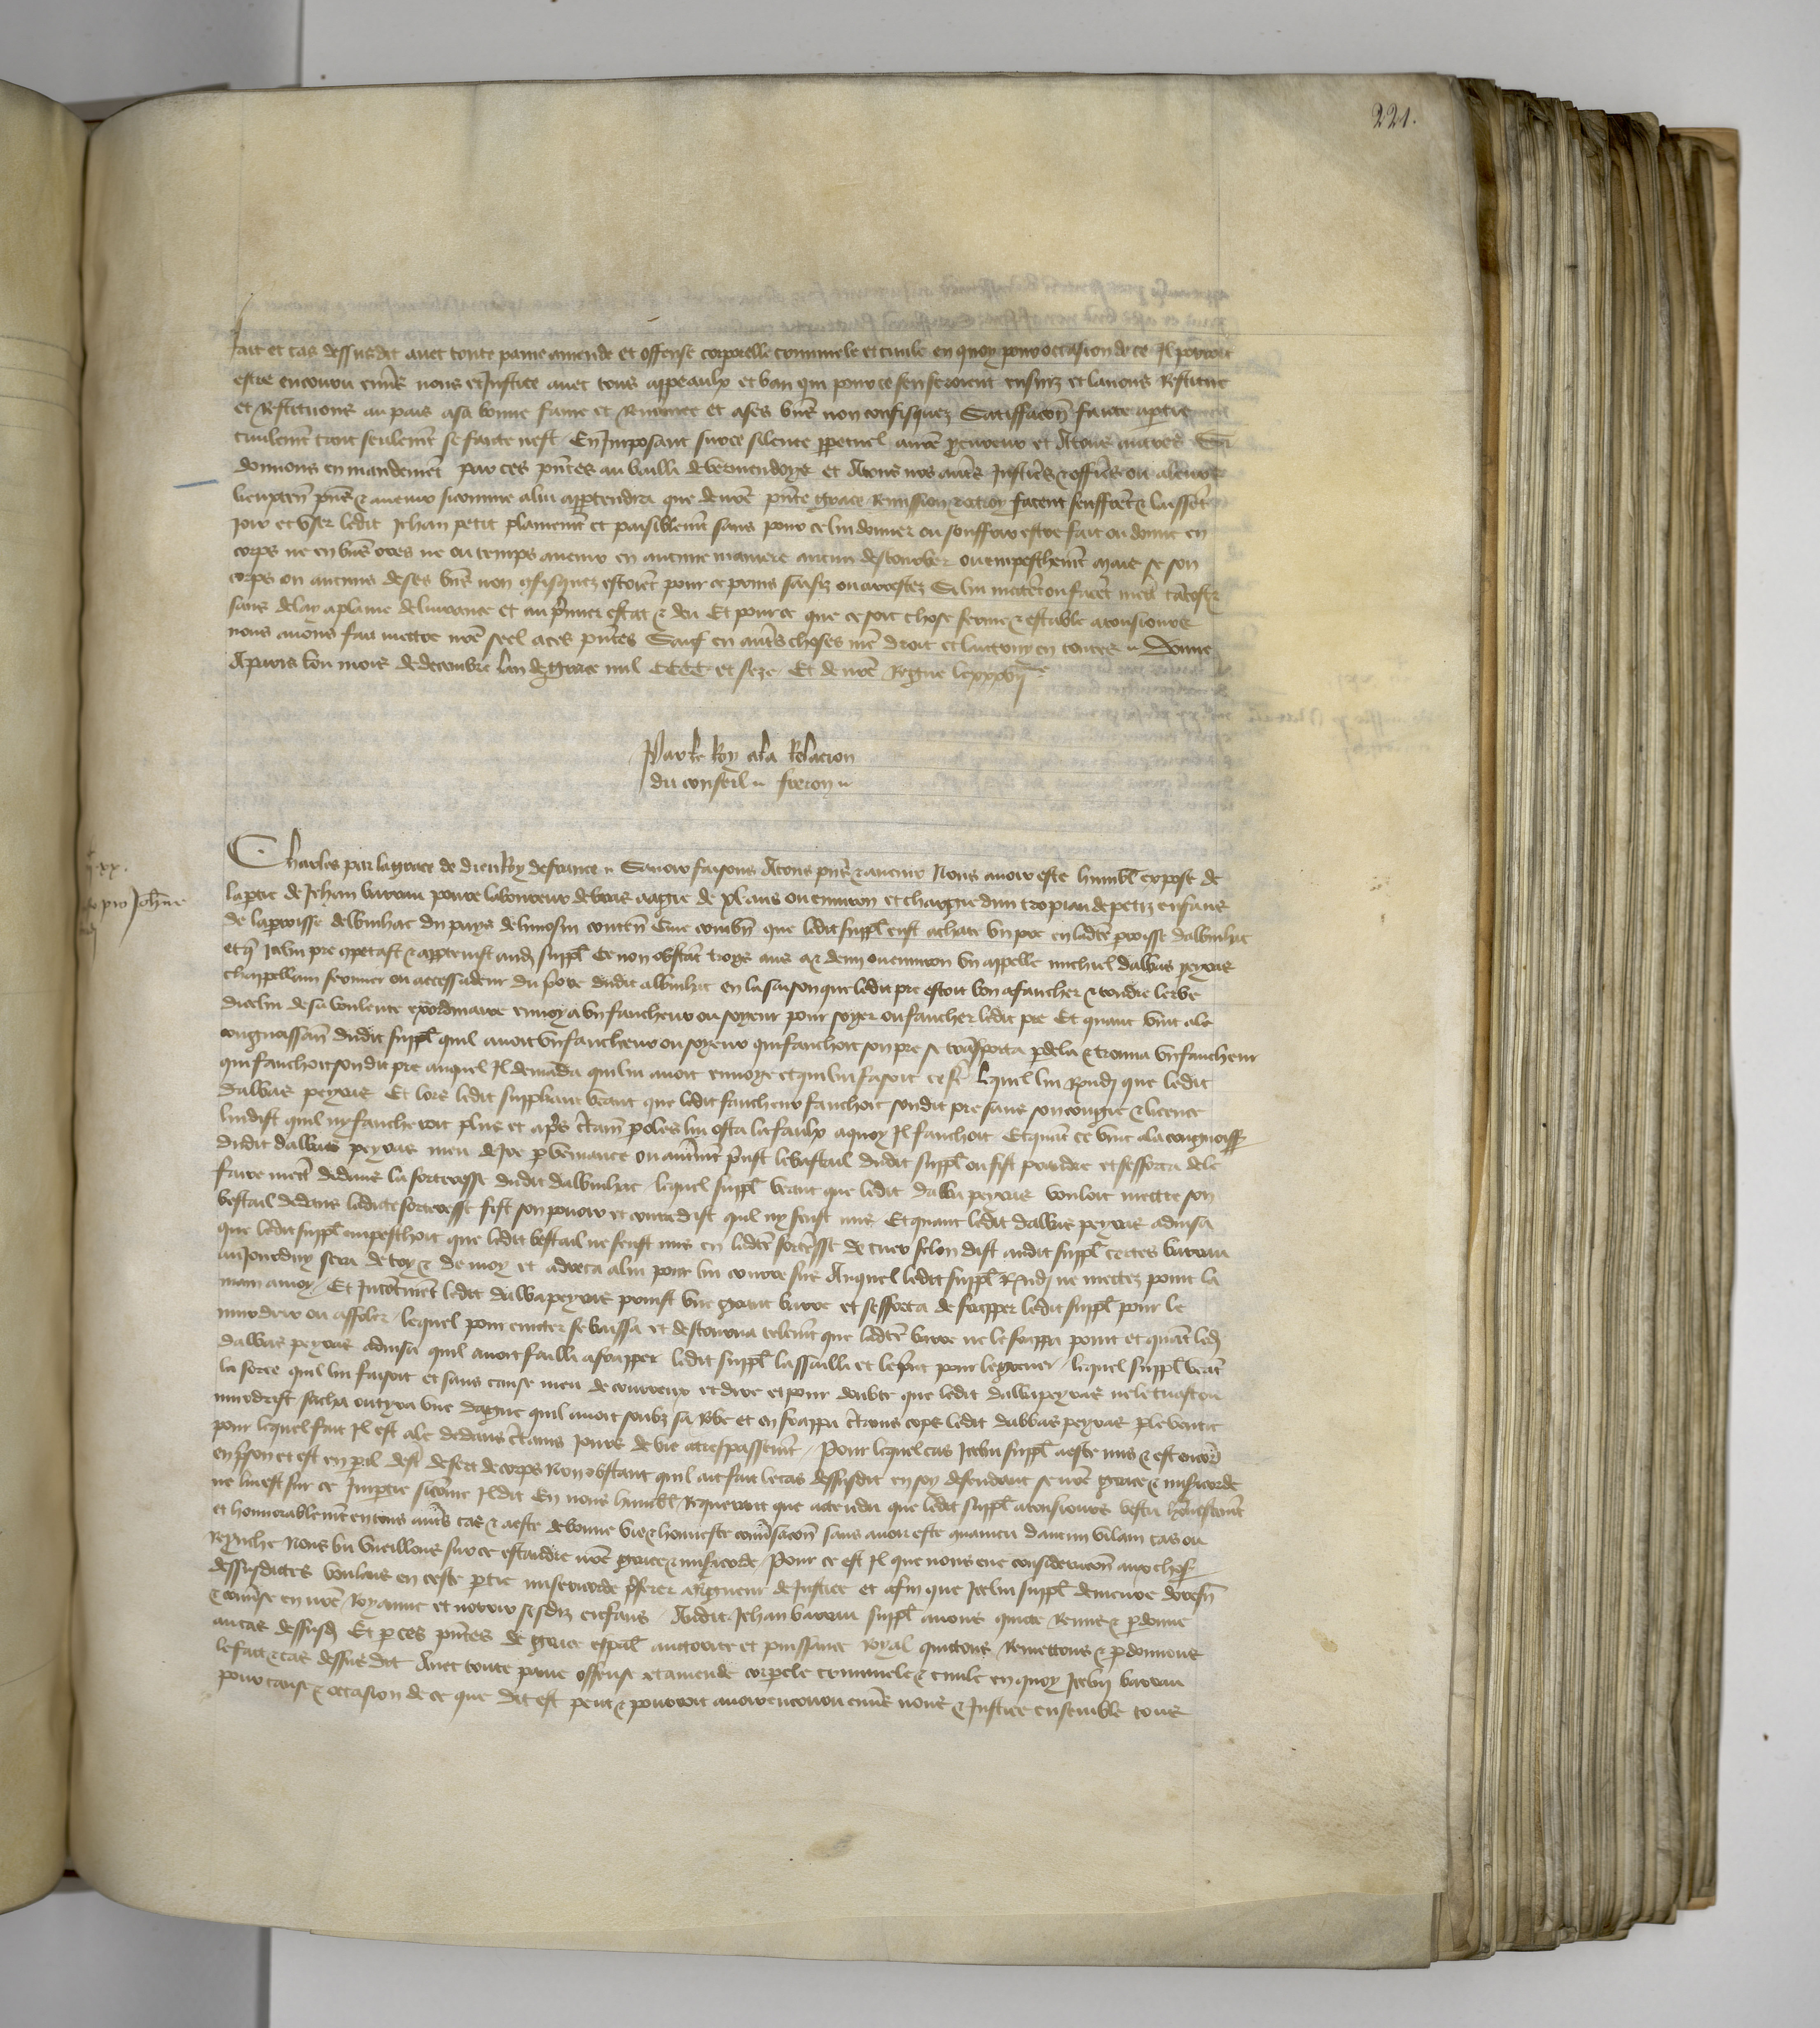 221.
fait et cas dessusdit avec toute paine amende et offense corporelle criminele et civile en quoy pour occasion de ce Il pourroit
estre encouru envers nous et Justice avec tous appeaulx et ban qui pour ce sen seroient ensuiz et lavons Restitue
et Restituons au pais a sa bonne fame et Renomee et a ses biens non confisquez Satisfacion faicte a partie
civilement tant seulement se faicte nest En Imposant sur ce silence perpetuel a nostre procureur et A tous autres Sy
donnons en mandement par ces presentes au bailli de vermendoys et A tous nos autres Justiciers & officiers ou a leurs
lieuxtenans presens & avenir si comme a lui appartendra que de nostre presente grace Remission & octroy facent seuffrent & laissent
Joir et User ledit Jehan petit plainement et paisiblement sans pour ce lui donner ou souffrir estre fait ou donne en
corps ne en biens ores ne ou temps avenir en aucune maniere aucun destourbier ou empeschement mais se son
corps ou aucuns de ses biens non confisquez estoient pour ce prins saisiz ou arrestez Si lui mettent ou facent mettre tantost &
sans delay a plaine delivrance et au premier estat & deu Et pour ce que ce soit chose ferme & estable a tousiours
nous avons fait mettre nostre seel a ces presentes Sauf en autres choses nostre droit et lautruy en toutes Donne
A paris lou mois de decembre lan de grace mil CCCC et seze Et de nostre Regne le xxxvije
Par le Roy a la Relacion
du conseil freron
pro Johanne
Charles par la grace de dieu Roy de france Savoir faisons A tous presens & avenir Nous avoir este humblement expose de
la partie de Jehan barrau povre laboureur de bras aagie de xl ans ou environ et chargie dun tropiau de petiz enfans
de la parroisse dalbinhac du pays de limosin contenant Que combien que ledit suppliant eust achate un pre en ladicte parroisse dalbinhac
et que Icelui pre competast & appartenist audit suppliant Ce non obstant troys ans a & demi ou environ un appelle michiel dalbas peyras
chappellain fermier ou accessadeur du prore dudit albinhac en la saison que ledit pre estoit bon a faucher & tondre lerbe
dicelui de sa voulente expordinaire envoya un faucheur ou soyeur pour soyer ou faucher ledit pre Et quant vint a la
congnoissance dudit suppliant quil avoit un faucheur ou soyeur qui fauchoit son pre se transporta par dela & trouva un faucheur
qui fauchoit sondit pre auquel Il demanda qui lui avoit envoye et qui lui faisoit ce fere lequel lui Respondi que ledit
dalbas peyras Et lors ledit suppliant veant que ledit faucheur fauchoit sondit pre sans son congie & licence
lui dist quil ny faucheroit plus et apres certaines paroles lui osta la faulx a quoy Il fauchoit Et quant ce vint a la congnoissance
dudit dalbas peyras meu de Ire par venjance ou autrement prinst le bestail dudit suppliant ou fist prandre et sefforca de le
faire mettre dedans la forteresse dudit dalbinhac lequel suppliant veant que ledit dalba peyras vouloit mettre son
bestail dedans ladicte forteresse fist son povoir et contredist quil ny feust mis Et quant ledit dalbas peyras advisa
que ledit suppliant empeschoit que ledit bestail ne feust mis en ladicte forteresse de cuer felon dist audit suppliant certes barrau
aujourduy sera de toy & de moy et adreca a lui pour lui courre sus Auquel ledit suppliant Respondi ne mectez point la
main a moy Et Incontinent ledit dalbapeyras prinst une grant barre et sefforca de frapper ledit suppliant pour le
murdrir ou affoler lequel pour eviter se baissa et destourna telement que ladicte barre ne le frappa point et quant ledit
dalbas peyras advisa quil avoit failli a frapper ledit suppliant lassailli et le print pour le grever lequel suppliant veant
la force quil lui faisoit et sans cause meu de courroux et dire et pour doubte que ledit dalbapeyras ne le tuast ou
murdrist sacha ou tyra une dague quil avoit soubz sa Robe et en frappa certains cops ledit dalbas peyras par le ventre
pour lequel fait Il est ale dedans certains Jours de vie a trespassement Pour lequel cas Icelui suppliant a este mis & est encores
en prison et est en peril destre desert de corps Non obstant quil ait fait le cas dessusdit en soy defendant se nostre grace & misericorde
ne lui est sur ce Impartie si comme Il dit En nous humblement Requerant que attendu que ledit suppliant a tousiours vescu honnestement
et honnorablement en tous autres cas & a este de bonne vie & honneste conversacion sans avoir este convaincu daucun vilain cas ou
Reprouche Nous lui Vueillons sur ce estandre nostre grace & misericorde Pour ce est Il que nous eue consideracion aux choses
dessusdictes voulans en ceste partie misericorde preferer a Rigueur de Justice et afin que Icelui suppliant demeure doresenavant
& converse en nostre Royaume et nourrir sesdiz enfans Audit Jehan barrau suppliant avons quicte Remis & pardonne
au cas dessusdit Et par ces presentes de grace especial auctorite et puissance Royal quittons Remettons & pardonnons
le fait & cas dessus dit Avec toute paine offense et amende corporele criminele & civile en quoy Icelui barrau
pour cause & occasion de ce que dit est peut & pourroit avoir encouru envers nous & Justice ensemble tous